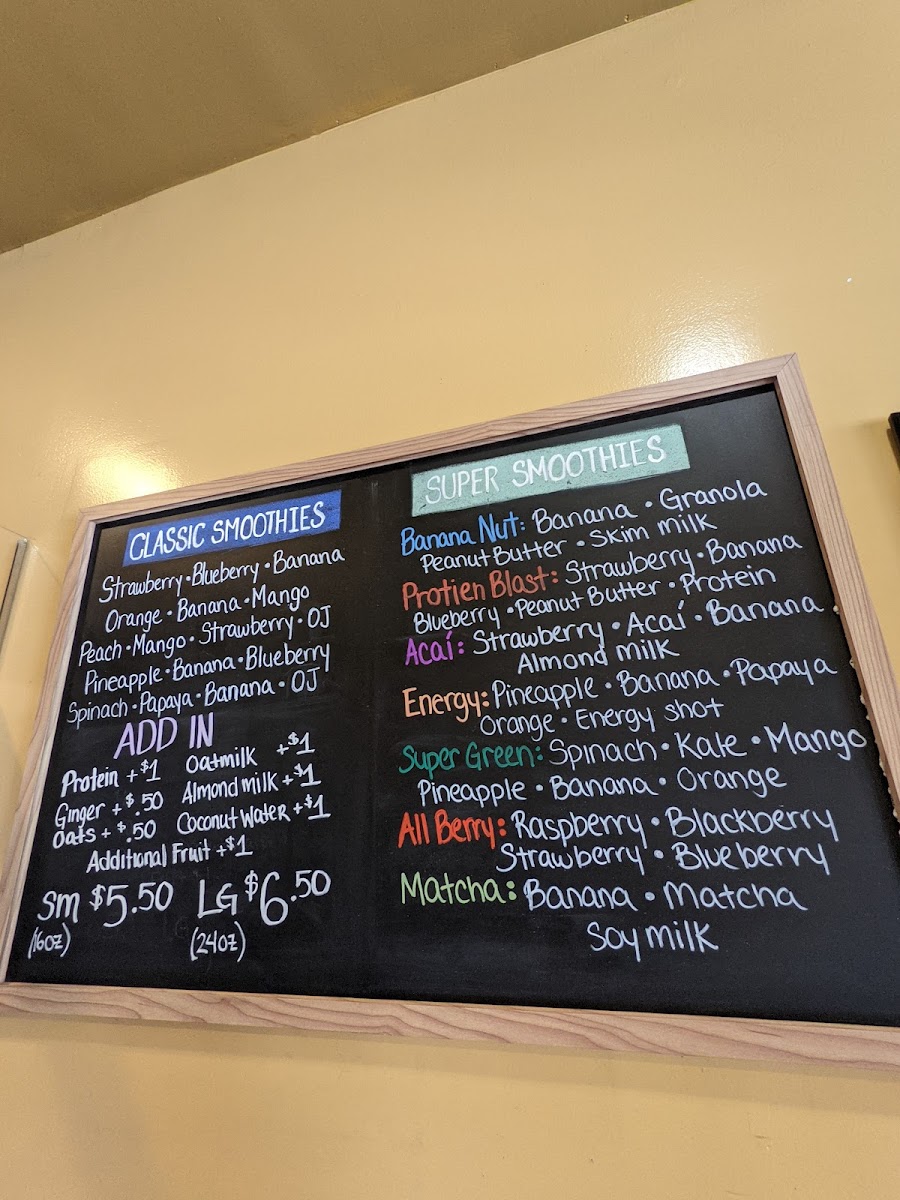 CLASSIC SMOOTHIES
Strawberry • Blueberry • Banana
Orange • Banana • Mango
Peach • Mango • Strawberry • OJ
Pineapple • Banana • Blueberry
Spinach • Papaya • Banana • OJ
ADD IN
Protein +$1 Oatmilk +$1
Ginger +$.50 Almond milk +$1
Oats +$.50 Coconut Water +$1
Additional Fruit +$1
Sm $5.50 LG $6.50
(16oz) (24oz)
SUPER SMOOTHIES
Banana Nut: Banana • Granola
Peanut Butter • Skim milk
Protien Blast: Strawberry • Banana
Blueberry • Peanut Butter • Protein
Acaí: Strawberry • Acaí • Banana
Almond milk
Energy: Pineapple • Banana • Papaya
Orange • Energy shot
Super Green: Spinach • Kale • Mango
Pineapple • Banana • Orange
All Berry: Raspberry • Blackberry
Strawberry • Blueberry
Matcha: Banana • Matcha
Soy milk